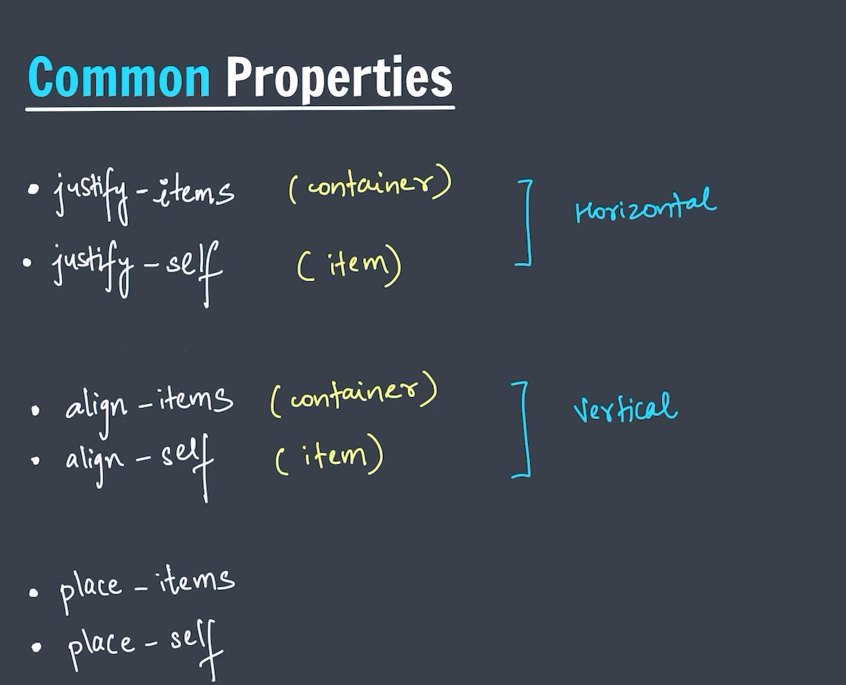 Common Properties
• justify-items (container)
• justify-self (item)
Horizontal
• align-items (container)
• align-self (item)
Vertical
• place-items
• place-self